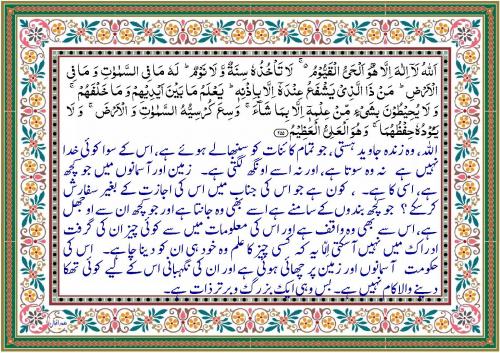 اَللّٰهُ لَاۤ اِلٰهَ اِلَّا هُوَ الْحَیُّ الْقَیُّوْمُ ۚ لَا تَاْخُذُهٗ سِنَةٌ وَّ لَا نَوْمٌ ؕ لَهٗ مَا فِی السَّمٰوٰتِ وَ مَا فِی
الْاَرْضِ ؕ مَنْ ذَا الَّذِیْ یَشْفَعُ عِنْدَهٗۤ اِلَّا بِاِذْنِهٖ ؕ یَعْلَمُ مَا بَیْنَ اَیْدِیْهِمْ وَ مَا خَلْفَهُمْ ۚ
وَ لَا یُحِیْطُوْنَ بِشَیْءٍ مِّنْ عِلْمِهٖۤ اِلَّا بِمَا شَآءَ ۚ وَسِعَ كُرْسِیُّهُ السَّمٰوٰتِ وَ الْاَرْضَ ۚ وَ لَا
یَـُٔوْدُهٗ حِفْظُهُمَا ۚ وَ هُوَ الْعَلِیُّ الْعَظِیْمُ ﴿۲۵۵﴾
اللہ، وہ زندہ جاوید ہستی، جو تمام کائنات کو سنبھالے ہوئے ہے، اس کے سوا کوئی خدا
نہیں ہے ۔ نہ وہ سوتا ہے، اور نہ اسے اونگھ لگتی ہے۔ زمین اور آسمانوں میں جو کچھ
ہے، اسی کا ہے۔ ، کون ہے جو اس کی جناب میں اس کی اجازت کے بغیر سفارش
کر سکے؟ جو کچھ بندوں کے سامنے ہے اسے بھی وہ جانتا ہے اور جو کچھ ان سے اوجھل
ہے، اس سے بھی وہ واقف ہے اور اس کی معلومات میں سے کوئی چیز ان کی گرفت
ادراک میں نہیں آسکتی الّا یہ کہ کسی چیز کا علم وہ خود ہی ان کو دینا چاہے۔ اس کی
حکومت آسمانوں اور زمین پر چھائی ہوئی ہے اور ان کی نگہبانی اس کے لیے کوئی تھکا
دینے والا کام نہیں ہے۔ بس وہی ایک بزرگ و برتر ذات ہے۔